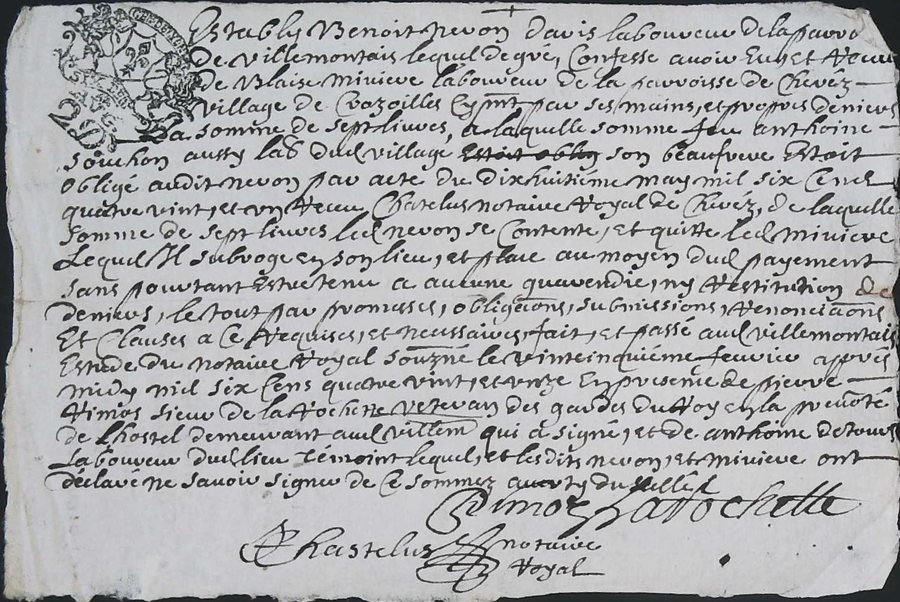 Establÿ Benoit nevon davis laboureur de la parro
de Villemontais lequel de gré, Confesse avoir Eu, et Receu
de Blaise miviere laboureur de la parroisse de Cheréz
Village de Crozoilles Cy pnt par ses mains, et propres deniers
La somme de sept livres, a laquelle somme feu anthoine
Souchon aussy lab dud village Estoit oblig son beaufrere Estoit
obligé audit nevon par acte du dixhuitiéme may mil six Cens
quatre vint, et un Receu Chatelus notaire Royal de Cheréz, de laquelle
somme de sept livres led nevon se Contente, et quitte led miviere
Lequel Il subroge en son lieu, et place au moyen dud payement
sans pourtant Estre tenu a aucune garendie, ny Restitution de
deniers, le tout par promesses, obligaons, submissions, Renonciaons
Et Clauses a ce Requises, et necessaires, fait, et passé aud villemontais
Estude du notaire Royal soubzne le vinteinquiéme fevrier appres
midy mil six Cens quatre vint, et unze En presence de pierre
Rimoz sieur de la Rochette veteran des gardes du Roy en la prevoté
de l'hostel demeurant aud villem qui a signé, et de anthoine detours
Laboureur dud lieu temoint lequel, et lesdits nevon, et miviere ont
déclaré ne savoir signer de Ce sommez
Rimoz Larochette
Chastelus notaire
Royal